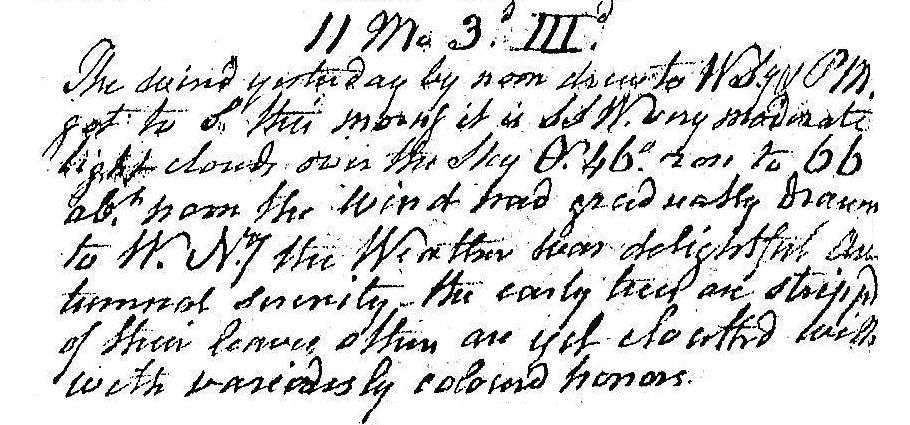 11 Mo 3d IIId
The wind yesterday by noon drew to WSy & PM.
got to S. this morng it is SSW. very moderate
light clouds over the Sky 46° rose to 66
abt noon the Wind had gradually drawn
to W. the Weather was delightful Au-
tumnal serenity - the early trees are strippd
of their leaves others are yet cloathd with
with variously colourd honors.